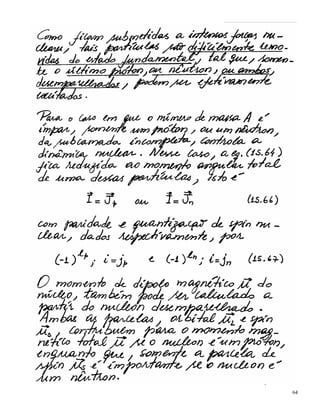 Como ficam submetidas a intensas forças nu-
cleares, tais partículas são dificilmente remo-
vidas do estado fundamental, tal que, somen-
te o último próton, ou nêutron, ou ambos,
desemparelhados, podem ser efetivamente
excitados.
Para o caso em que o número de massa A é
ímpar, somente um próton, ou um nêutron,
da subcamada incompleta, controla a
dinâmica nuclear. Nesse caso, a eq. (15.64)
fica reduzida ao momento angular total
de uma dessas partículas, isto é
I⃗ = J⃗p ou I⃗ = J⃗n (15.66)
com paridade e quantização de spin nu-
clear, dados respectivamente, por
(-1)^ℓp ; i=jp e (-1)^ℓn ; i=jn (15.67)
O momento de dipolo magnético μ⃗ do
núcleo, também pode ser calculado a
partir do nucleon desemparelhado.
Ambas as parcelas, orbital μ⃗L e spin
μ⃗s, contribuem para o momento mag-
nético total μ⃗ se o nucleon é um próton,
enquanto que, somente a parcela de
spin μ⃗s é importante se o nucleon é
um nêutron.
64